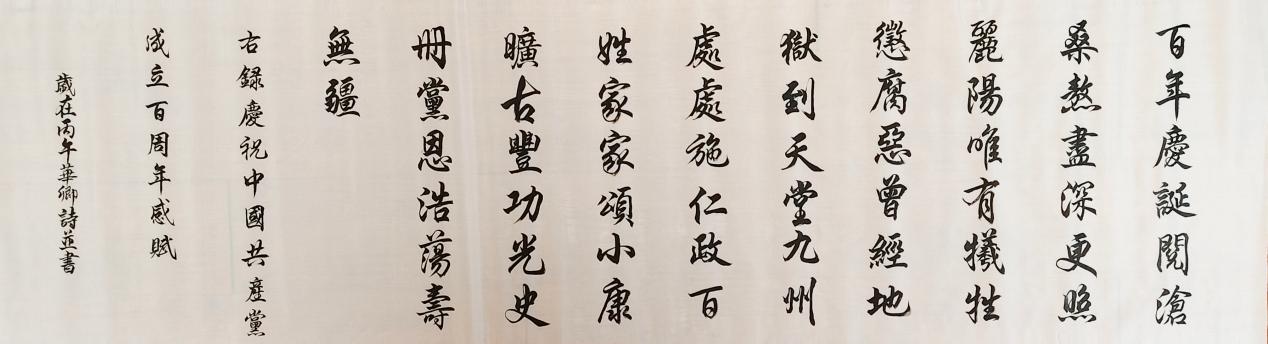 百年慶誕閱滄
桑熬盡深更照
麗陽唯有犧牲
懲腐惡曾經地
獄到天堂九州
處處施仁政百
姓家家頌小康
曠古豐功光史
冊黨恩浩蕩壽
無疆
右錄慶祝中國共產黨
成立百周年感賦
歲在丙午華卿詩並書